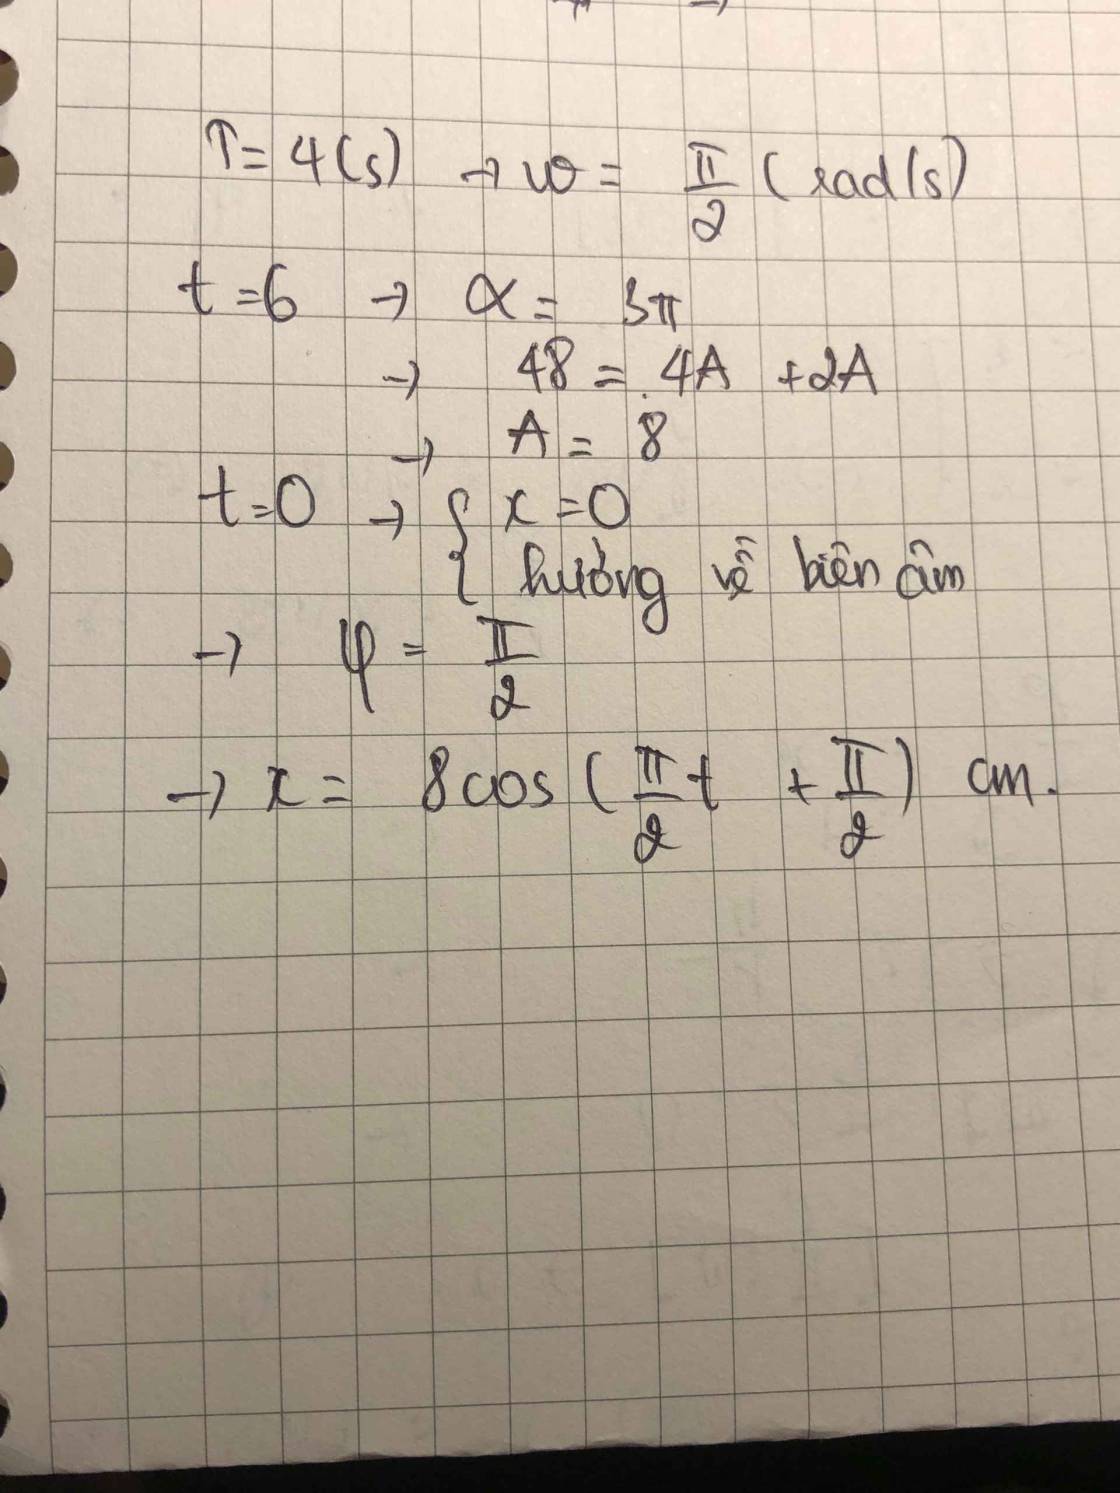 T = 4 (s) → ω = π/2 (rad/s)
t = 6 → α = 3π
→ 48 = 4A + 2A
→ A = 8
t = 0 → { x = 0
hướng về biên âm
→ φ = π/2
→ x = 8cos (π/2 t + π/2) cm.